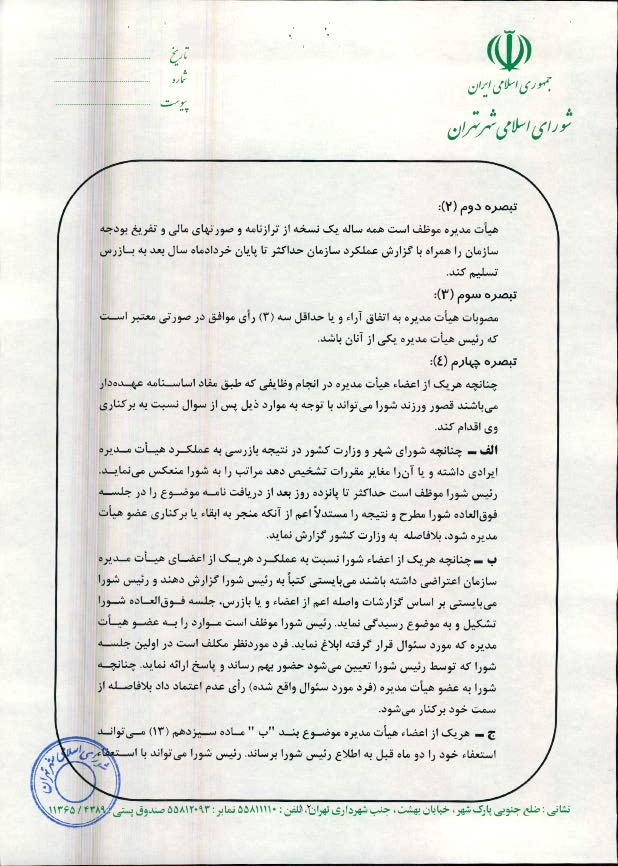 جمهوری اسلامی ایران
شورای اسلامی شهر تهران
تاریخ
شماره
پیوست
تبصره دوم (۲):
هیأت مدیره موظف است همه ساله یک نسخه از ترازنامه و صورتهای مالی و تفریغ بودجه
سازمان را همراه با گزارش عملکرد سازمان حداکثر تا پایان خردادماه سال بعد به بازرس
تسلیم کند.
تبصره سوم (۳):
مصوبات هیأت مدیره به اتفاق آراء و یا حداقل سه (۳) رأی موافق در صورتی معتبر است
که رئیس هیأت مدیره یکی از آنان باشد.
تبصره چهارم (٤):
چنانچه هریک از اعضاء هیأت مدیره در انجام وظایفی که طبق مفاد اساسنامه عهده‌دار
می‌باشند قصور ورزند شورا می‌تواند با توجه به موارد ذیل پس از سوال نسبت به برکناری
وی اقدام کند.
الف – چنانچه شورای شهر و وزارت کشور در نتیجه بازرسی به عملکرد هیأت مدیره
ایرادی داشته و یا آن‌را مغایر مقررات تشخیص دهد مراتب را به شورا منعکس می‌نماید.
رئیس شورا موظف است حداکثر تا پانزده روز بعد از دریافت نامه موضوع را در جلسه
فوق‌العاده شورا مطرح و نتیجه را مستدلاً اعم از آنکه منجر به ابقاء یا برکناری عضو هیأت
مدیره شود، بلافاصله به وزارت کشور گزارش نماید.
ب – چنانچه هریک از اعضاء شورا نسبت به عملکرد هریک از اعضای هیأت مدیره
سازمان اعتراضی داشته باشند می‌بایستی کتباً به رئیس شورا گزارش دهند و رئیس شورا
می‌بایستی بر اساس گزارشات واصله اعم از اعضاء و یا بازرس، جلسه فوق‌العاده شورا
تشکیل و به موضوع رسیدگی نماید. رئیس شورا موظف است موارد را به عضو هیأت
مدیره که مورد سئوال قرار گرفته ابلاغ نماید. فرد موردنظر مکلف است در اولین جلسه
شورا که توسط رئیس شورا تعیین می‌شود حضور بهم رساند و پاسخ ارائه نماید. چنانچه
شورا به عضو هیأت مدیره (فرد مورد سئوال واقع شده) رأی عدم اعتماد داد بلافاصله از
سمت خود برکنار می‌شود.
ج – هریک از اعضاء هیأت مدیره موضوع بند "ب" ماده سیزدهم (۱۳) می‌تواند
استعفاء خود را دو ماه قبل به اطلاع رئیس شورا برساند. رئیس شورا می‌تواند با استعفاء
شورای اسلامی شهر تهران
نشانی : ضلع جنوبی پارک شهر، خیابان بهشت، جنب شهرداری تهران، تلفن : ۵۵۸۱۱۱۱۰ نمابر : ۵۵۸۱۲۰۹۳ صندوق پستی : ۴۳۸۹ / ۱۱۳۶۵